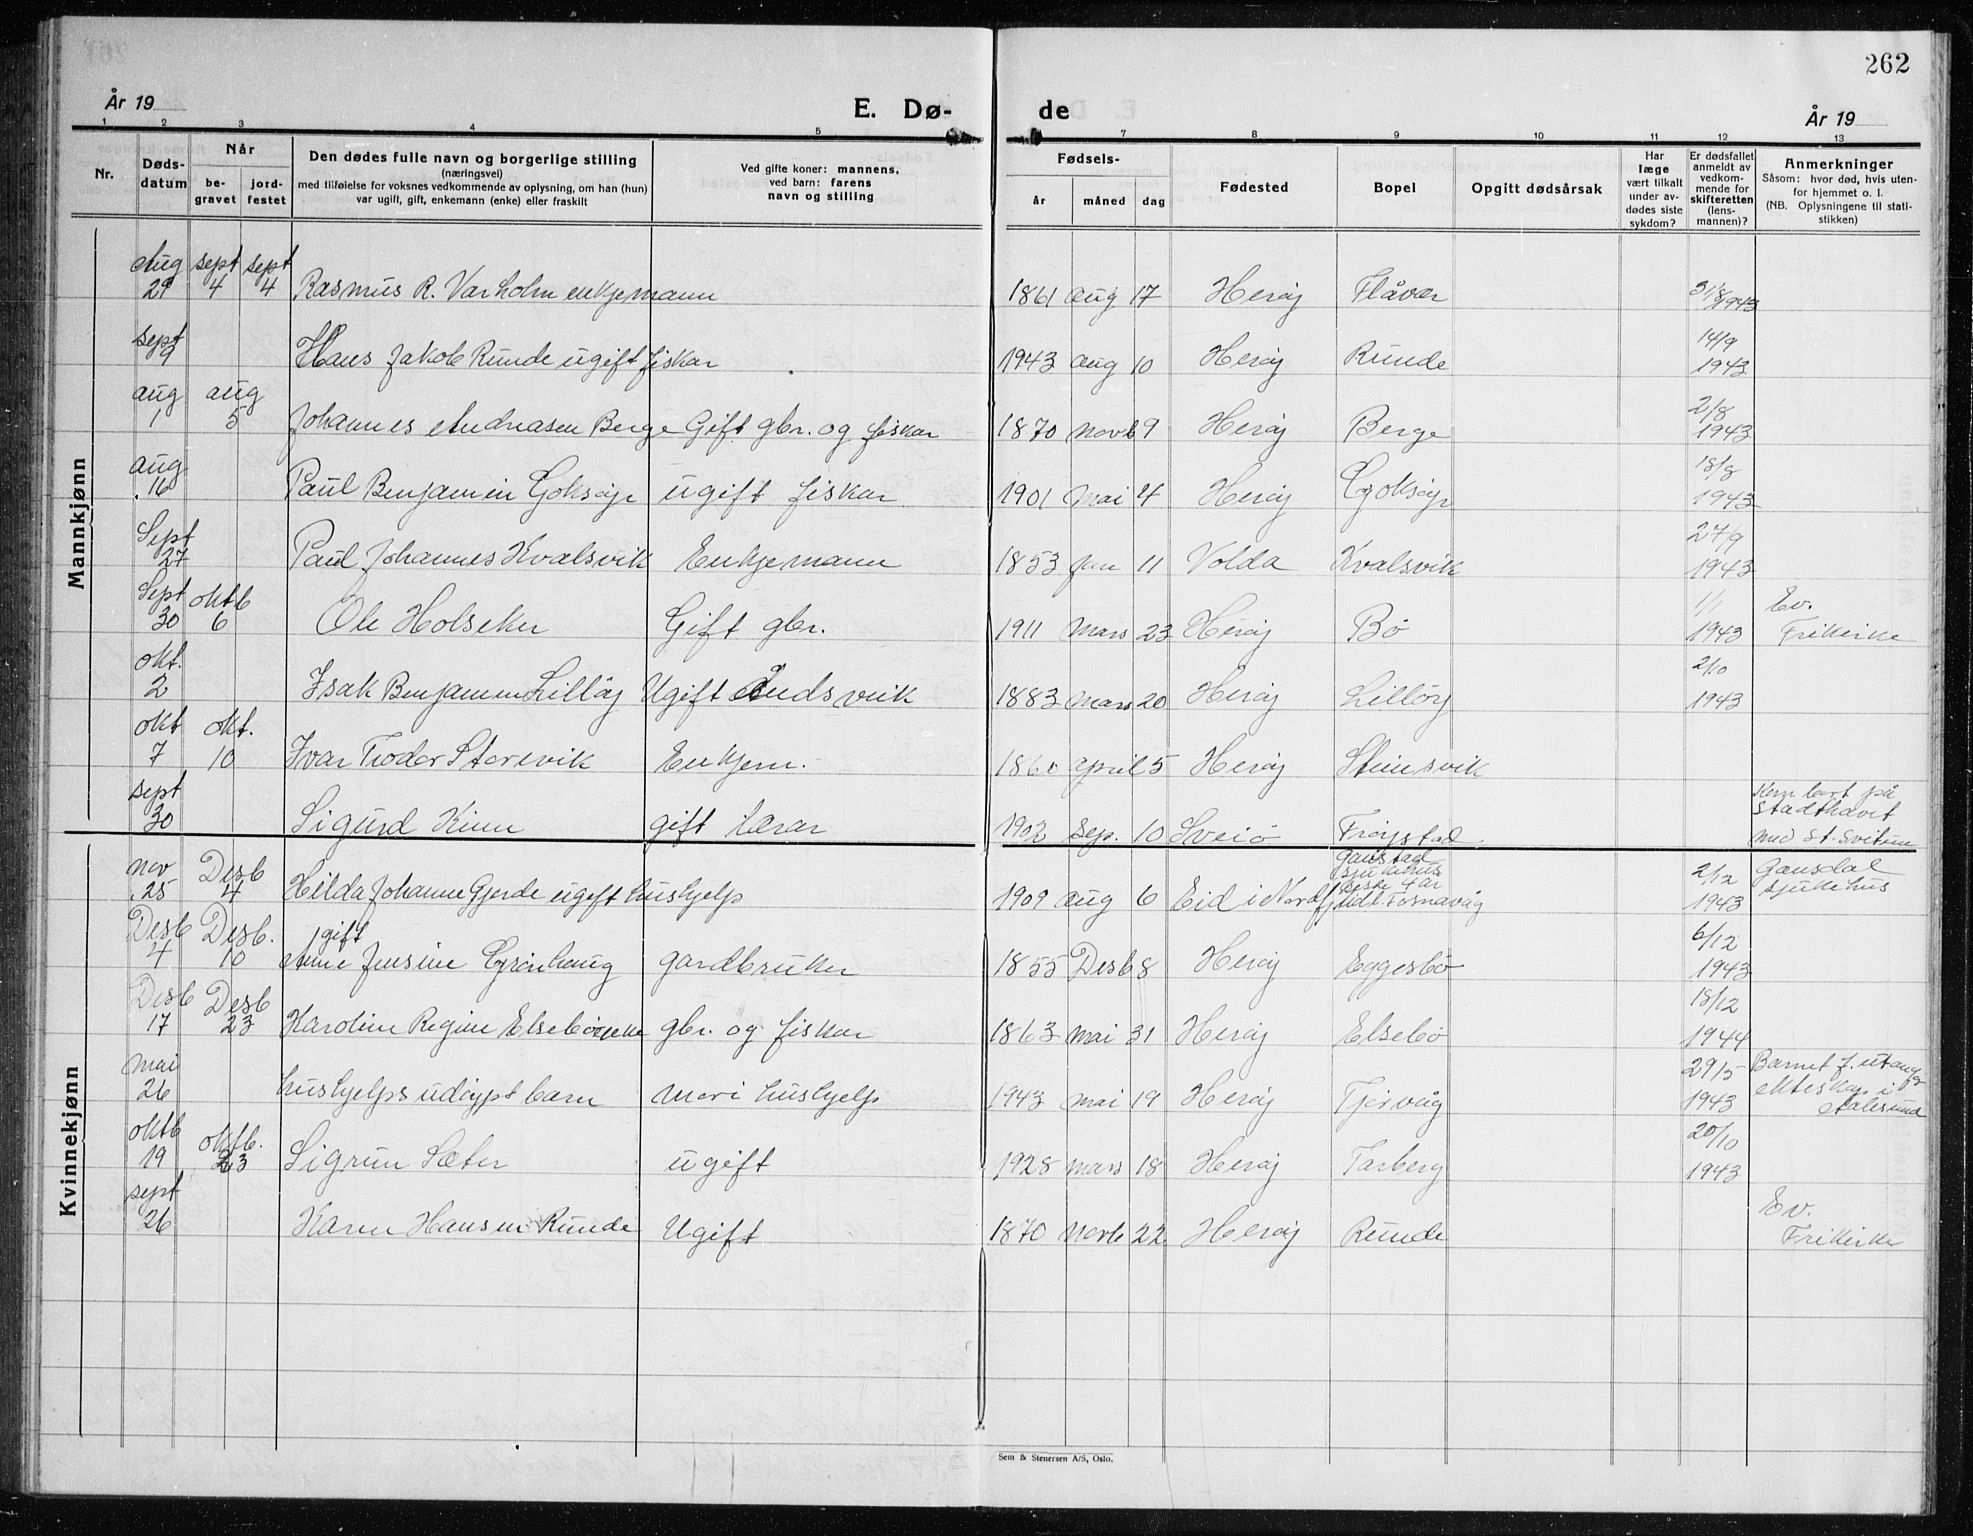 262
År 19
E. Dø-
de
År 19
1 2 3 4 5 7 8 9 10 11 12 13
Nr.
Døds-
datum
Når
be-
gravet
jord-
festet
Den dødes fulle navn og borgerlige stilling
(næringsvei)
med tilføielse for voksnes vedkommende av oplysning, om han (hun)
var ugift, gift, enkemann (enke) eller fraskilt
Ved gifte koner: mannens,
ved barn: farens
navn og stilling
Fødsels-
år måned dag
Fødested
Bopel
Opgitt dødsårsak
Har
læge
vært tilkalt
under av-
dødes siste
sykdom?
Er dødsfallet
anmeldt av
vedkom-
mende for
skifteretten
(lens-
mannen)?
Anmerkninger
Såsom: hvor død, hvis uten-
for hjemmet o. l.
(NB. Oplysningene til stati-
stikken)
Mannkjønn
Aug sept sept
29 4 4 Rasmus R. Varholm enkjemann 1861 aug 17 Herøy Flåvær 31/8 1943
sept 14/9
9 Hans Jakob Runde ugift fiskar 1943 aug 10 Herøy Runde 1943
aug aug 2/8
1 5 Johannes Andreasen Berge Gift gbr. og fiskar 1870 novb 9 Herøy Berge 1943
aug 18/8
16 Paul Benjamin Goksøyr ugift fiskar 1901 Mai 4 Herøy Goksøyr 1943
Sept 27/9
27 Paul Johannes Kvalsvik Enkjemann 1853 jan 11 Volda Kvalsvik 1943
Sept oktb 1/1 Ev.
30 6 Ole Holseker Gift gbr. 1911 Mars 23 Herøy Bø 1943 Frikirke
okt. 2/10
2 Isak Benjamin Lilløy Ugift Åndsveik 1883 Mars 20 Herøy Lilløy 1943
okt okt.
7 10 Ivar Teodor Storevik Enkjem. 1860 april 5 Herøy Steinsvik
sept Kom bort på
30 Sigurd Kinn gift Lærar 1902 Sep. 10 Sveiø Frøystad Stadthavet
med St. Svitun
Kvinnekjønn
nov Desb Gaustad sjukehus siste 4 år 2/12 Gausdal
25 4 Hilda Johanne Gjerde ugift hushjelp 1909 aug 6 Eid i Nordfj. Fosnavåg 1943 sjukehus
Desb Desb. gift 6/12
4 10 Anne Jensine Grønhaug gardbruker 1855 Desb 8 Herøy Eggesbø 1943
Desb Desb 18/12
17 23 Karoline Regine Elsebø enke gbr. og fiskar 1863 Mai 31 Herøy Elsebø 1944
Mai 29/5 Barnet f. utanfor
26 hushjelps udøypt barn mori hushjelp 1943 mai 19 Herøy Tjørvåg 1943 ekteskap i
Aalesund
oktb oktb. 20/10
19 23 Sigrun Sæter ugift 1928 mars 18 Herøy Tarberg 1943
sept Ev.
26 Karen Hansen Runde Ugift 1870 Novb 22 Herøy Runde Frikirke
Sem & Stenersen A/S, Oslo.